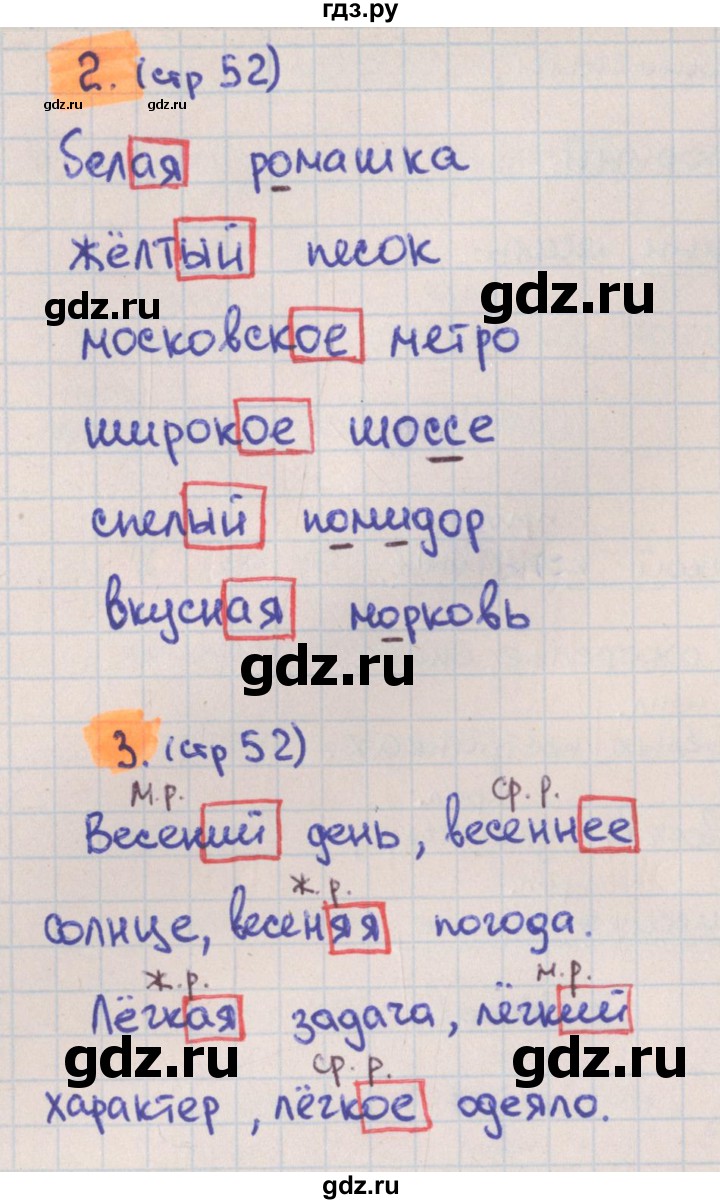 гдз.ру
2. (стр 52)
gdz.ru gdz.ru
белая ромашка
жёлтый песок
gdz.ru gdz.ru
московское метро
широкое шоссе
спелый помидор
вкусная морковь
gdz.ru
3. (стр 52)
м.р. ср. р.
Весений день, весеннее
ж. р.
солнце, весеняя погода.
ж.р. м.р.
Лёгкая задача, лёгкий
gdz.ru ср. р. gdz.ru
характер, лёгкое одеяло.
gdz.ru